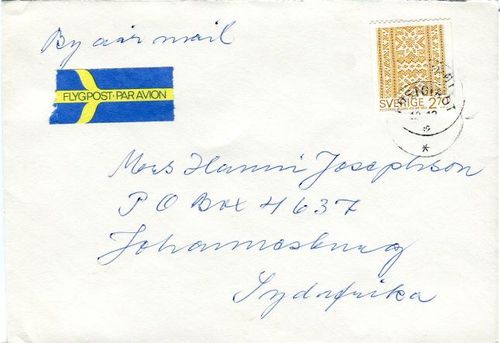 By air mail
FLYGPOST·PAR AVION
SVERIGE 270
Mrs Hanni Josephson
P O Box 4637
Johannesburg
Sydafrika